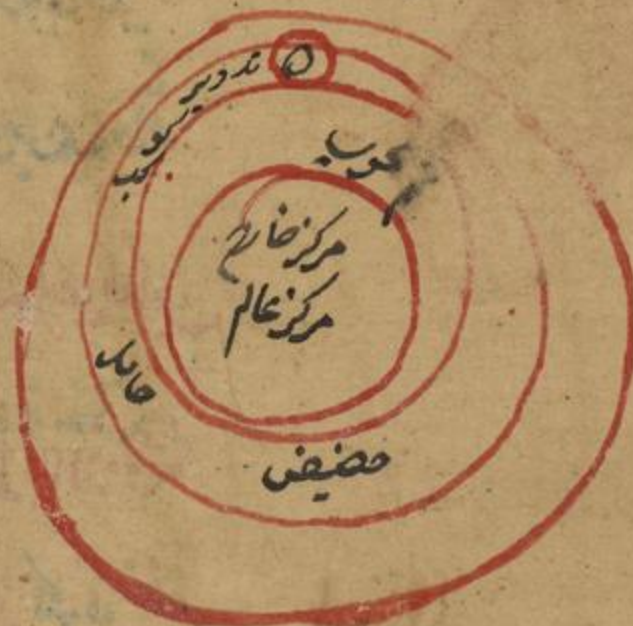 تدویر
کوکب
مرکز خارج
مرکز عالم
حامل
حضیض